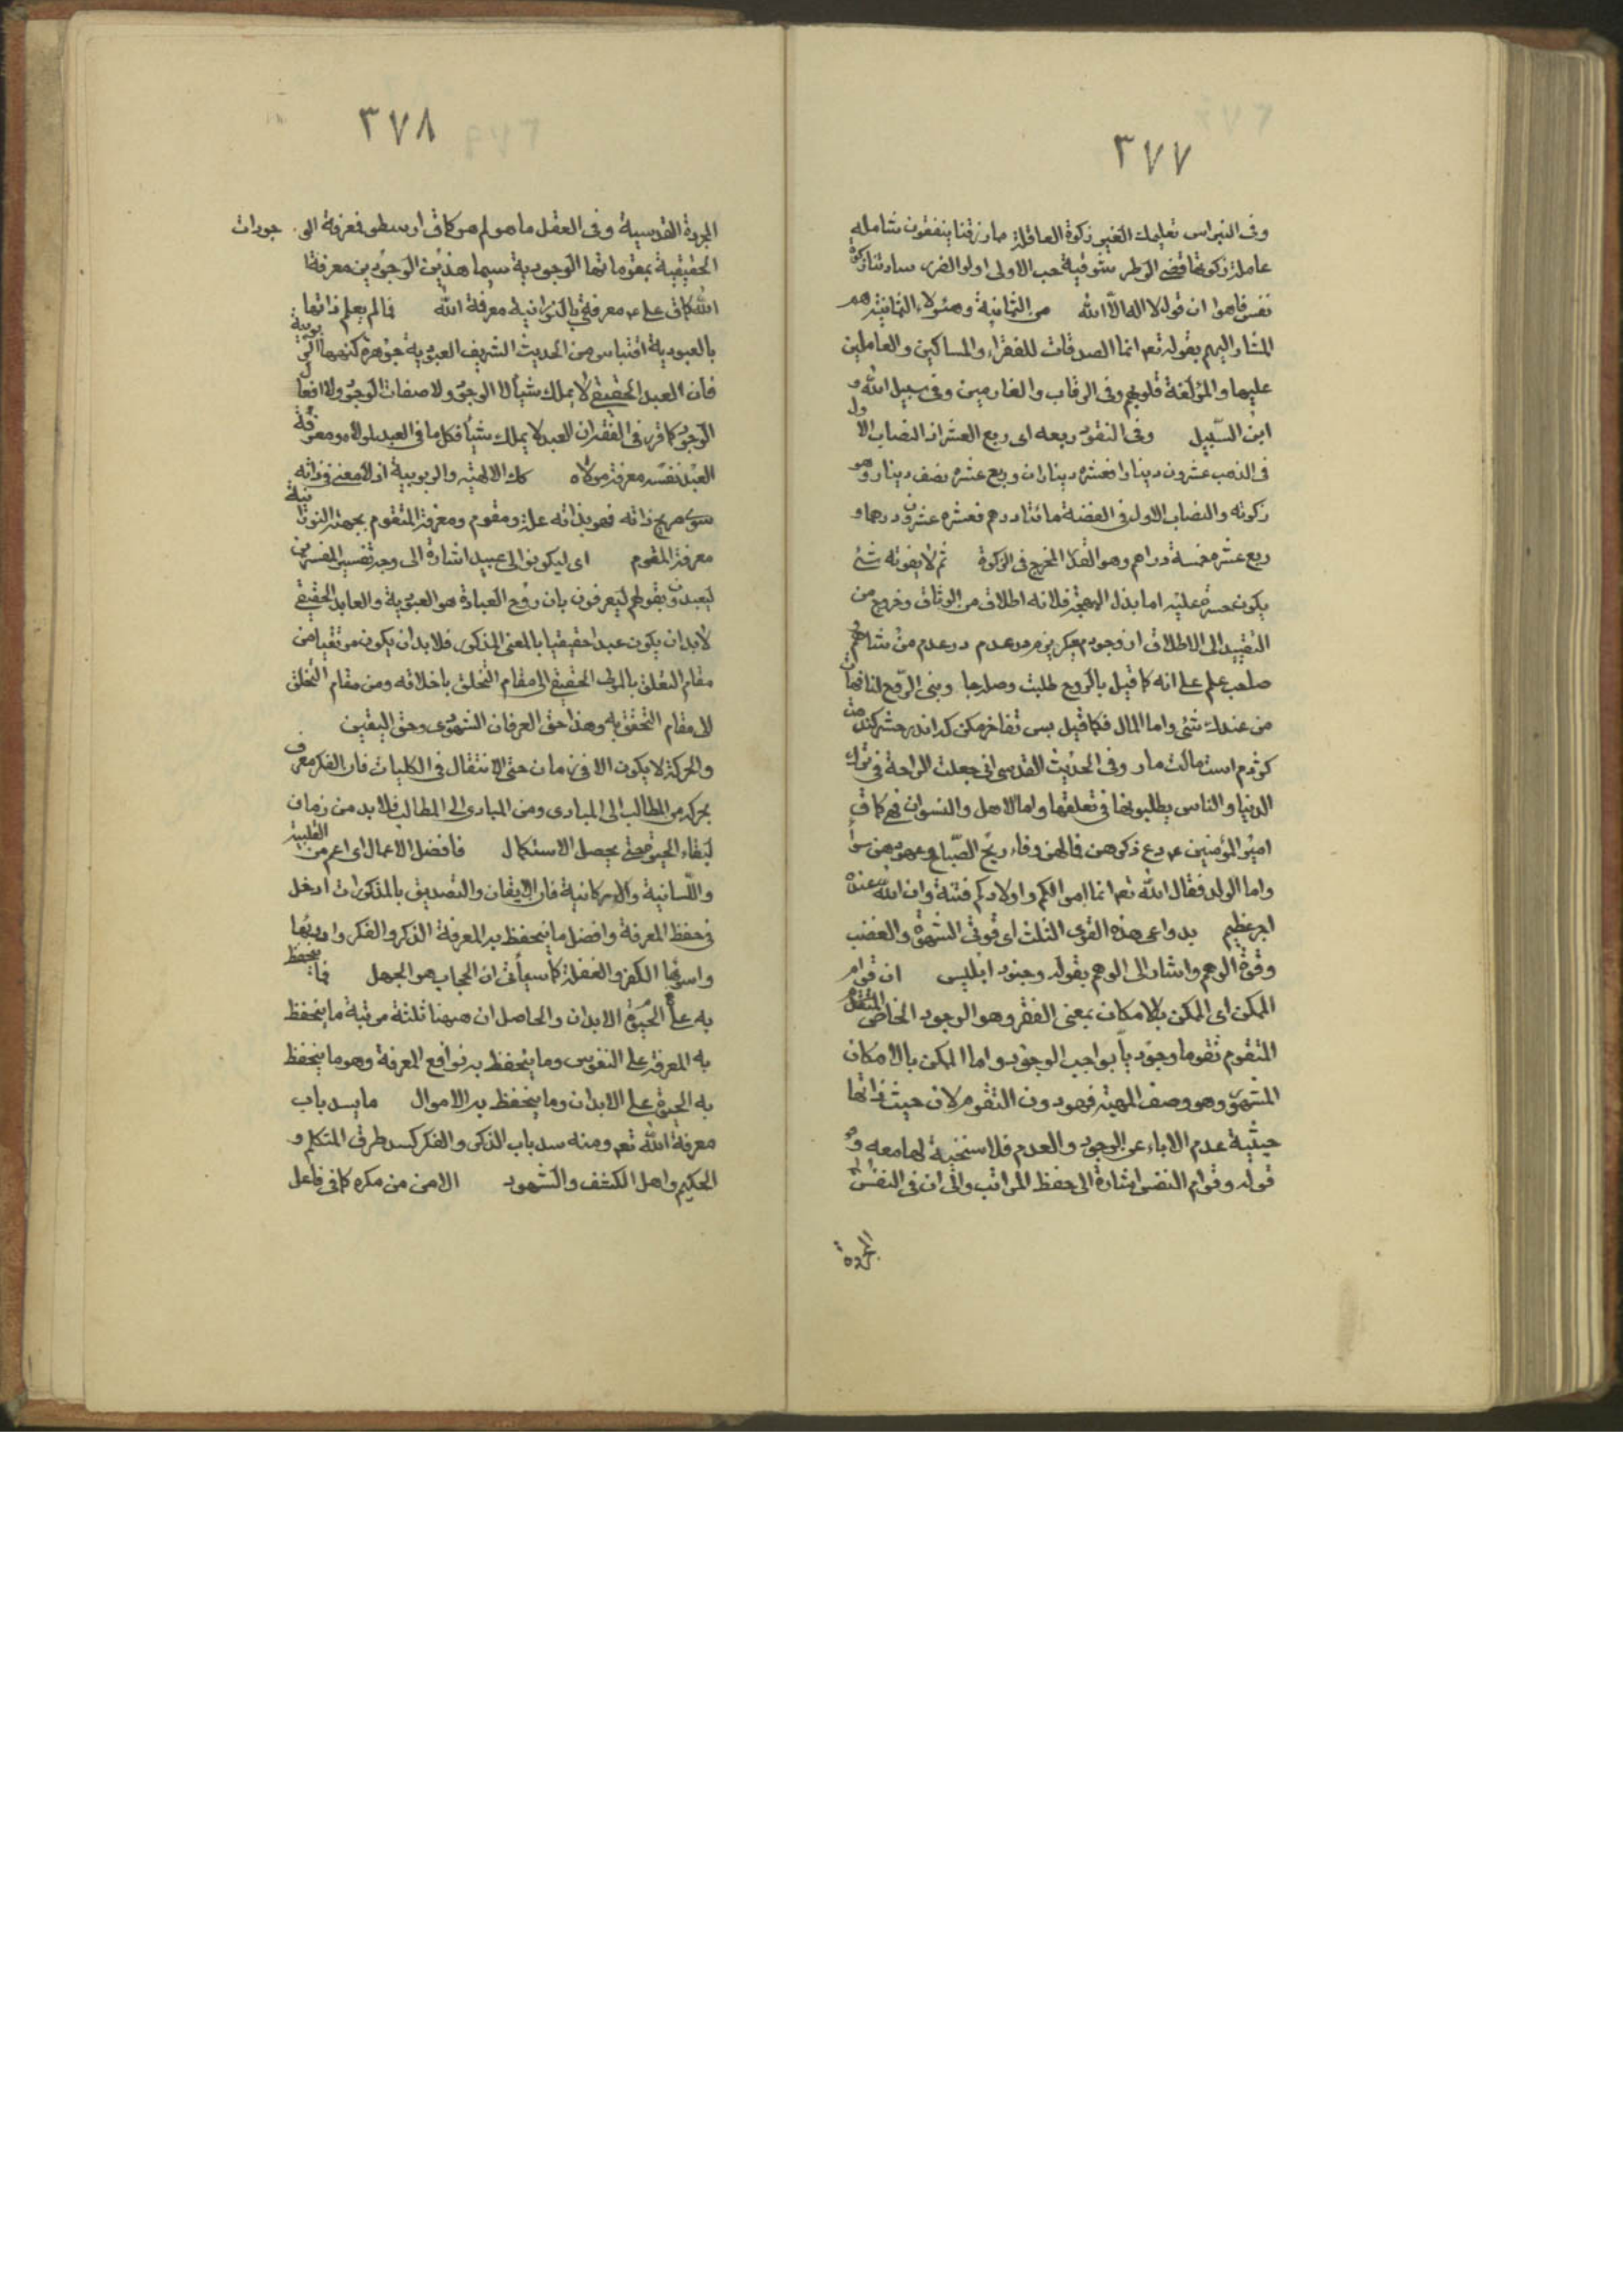 ٣٧٧
وفى النبراس تعليمك الغير زكوة العاقلة مما رزقنا ينفقون شامله
عاملة زكوتها قضى الوطر شوقية حب الاولى اولوا الضرر سادتنا زكوة
نفس فاهوا ان قوله لا اله الا الله من الثمانية وهئولاء الثمانية هم
المشار اليهم بقوله تعه انما الصدقات للفقراء والمساكين والعاملين
عليها والمؤلفة قلوبهم وفى الرقاب والغارمين وفى سبيل الله و
ابن السبيل وفى النقود ربعه اى ربع العشر اذ النصاب الاول
فى الذهب عشرون دينارا فعشره ديناران وربع عشره نصف دينار وهو
زكوته والنصاب الاول فى الفضة مائتا درهم فعشره عشرون درهما و
ربع عشره خمسة دراهم وهو القدر المخرج فى الزكوة ثم لا يفوته شئ
يكون حسرة عليه اما بذل المهجة فلانه اطلاق من الوثاق وخروج من
التقييد الى الاطلاق از وجودم ميگريزم در عدم در عدم من شاهم
صاحب علم على انه كما قيل بالروح طلبت وصلها وبنى الروح لنا فهات
من عندك شئ واما المال فكما قيل بس تفاخر مكن كه اندر حشر
كژدم است مالت مار وفى الحديث القدسى انى جعلت الراحة فى ترك
الدنيا والناس يطلبونها فى تعلقها واما الاهل والنسوان فهم كما ق
امير المؤمنين ع دع ذكرهن فما لهن وفاء ريح الصبا وعهودهن سواء
واما الولد فقال الله تعه انما اموالكم واولادكم فتنة وان الله عنده
اجر عظيم بدواعى هذه القوى الثلث اى قوتى الشهوة والغضب
وقوة الوهم واشار الى الوهم بقوله وجنود ابليس ان قوام
الممكن اى الممكن بالامكان بمعنى الفقر وهو الوجود الخاص
المتقوم تقوما وجوديا بواجب الوجود واما الممكن بالامكان
المشهور وهو وصف المهية فهو دون التقوم لان حيث ذاتها
حيثية عدم الاباء عن الوجود والعدم فلا سنخية لها معه و
قوله وقوام النفس اشارة الى حفظ المراتب والى ان فى النفس
المجردة
٣٧٨
المجردة القدسية وفى العقل ما هو لم هو كما ق ارسطو فمعرفة الوجودات
الحقيقية بمقوماتها الوجودية سيما هذين الوجودين معرفة
الله كما ق على ع معرفتى بالنورانية معرفة الله فالم يعلم ذاتها
بالعبودية اقتباس من الحديث الشريف العبودية جوهرة كنهها الربوبية
فان العبد الحقيقى لا يملك شيئا لا الوجود ولا صفات الوجود ولا افعال
الوجود كما قرر فى الفقه ان العبد لا يملك شيئا فكل ما فى العبد لمولاه ومعرفة
العبد نفسه معرفة مولاه كك الالهية والربوبية اذ لا معنى فى ذاته
سوى صريح ذاته فهو بذاته علة ومقوم ومعرفة المتقوم بجهته النورانية
معرفة المقوم اى ليكونوا لى عبيد اشارة الى وجه تفسير المفسرين
ليعبدون بقولهم ليعرفون بان روح العبادة هو العبودية والعابد الحقيقى
لابد ان يكون عبدا حقيقيا بالمعنى المذكور فلا بد ان يكون مرتقيا من
مقام التعلق بالمولى الحقيقى الى مقام التخلق باخلاقه ومن مقام التخلق
الى مقام التحقق به وهذا حق العرفان الشهودى وحق اليقين
والحركة لا يكون الا فى زمان حتى الانتقال فى الكليات فان الفكر معرف
بحركة من المطالب الى المبادى ومن المبادى الى المطالب فلا بد من زمان
لبقاء الحيوة حتى يحصل الاستكمال فافضل الاعمال اى اعم من القلبية
واللسانية والاركانية فان الايقان والتصديق بالمذكورات ادخل
فى حفظ المعرفة وافضل ما ينحفظ به المعرفة الذكر والفكر وادونها
واسوئها الكفر والغفلة كما سيأتى ان الحجاب هو الجهل فما ينحفظ
به على الحيوة الابدان والحاصل ان ههنا ثلثة مرتبة ما ينحفظ
به المعرفة على النفوس وما ينحفظ به نوافع المعرفة وهو ما ينحفظ
به الحيوة على الابدان وما ينحفظ به الاموال ما يسد باب
معرفة الله تعه ومنه سد باب الذكر والفكر كسد طرق المتكلم و
الحكيم واهل الكشف والشهود الامن من مكره كما فى فاعل